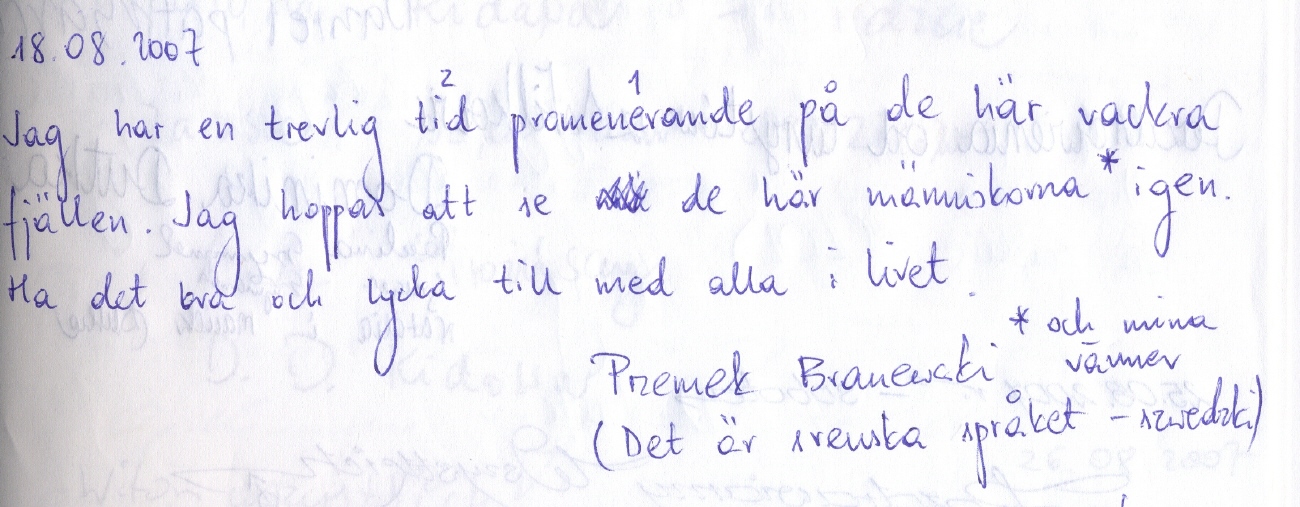 18.08.2007
2 1
Jag har en trevlig tid promenerande på de här vackra
fjällen. Jag hoppas att se de här människorna * igen.
Ha det bra och lycka till med alla i livet.
* och mina
vänner
Przemek
(Det är svenska språket – szwedzki)